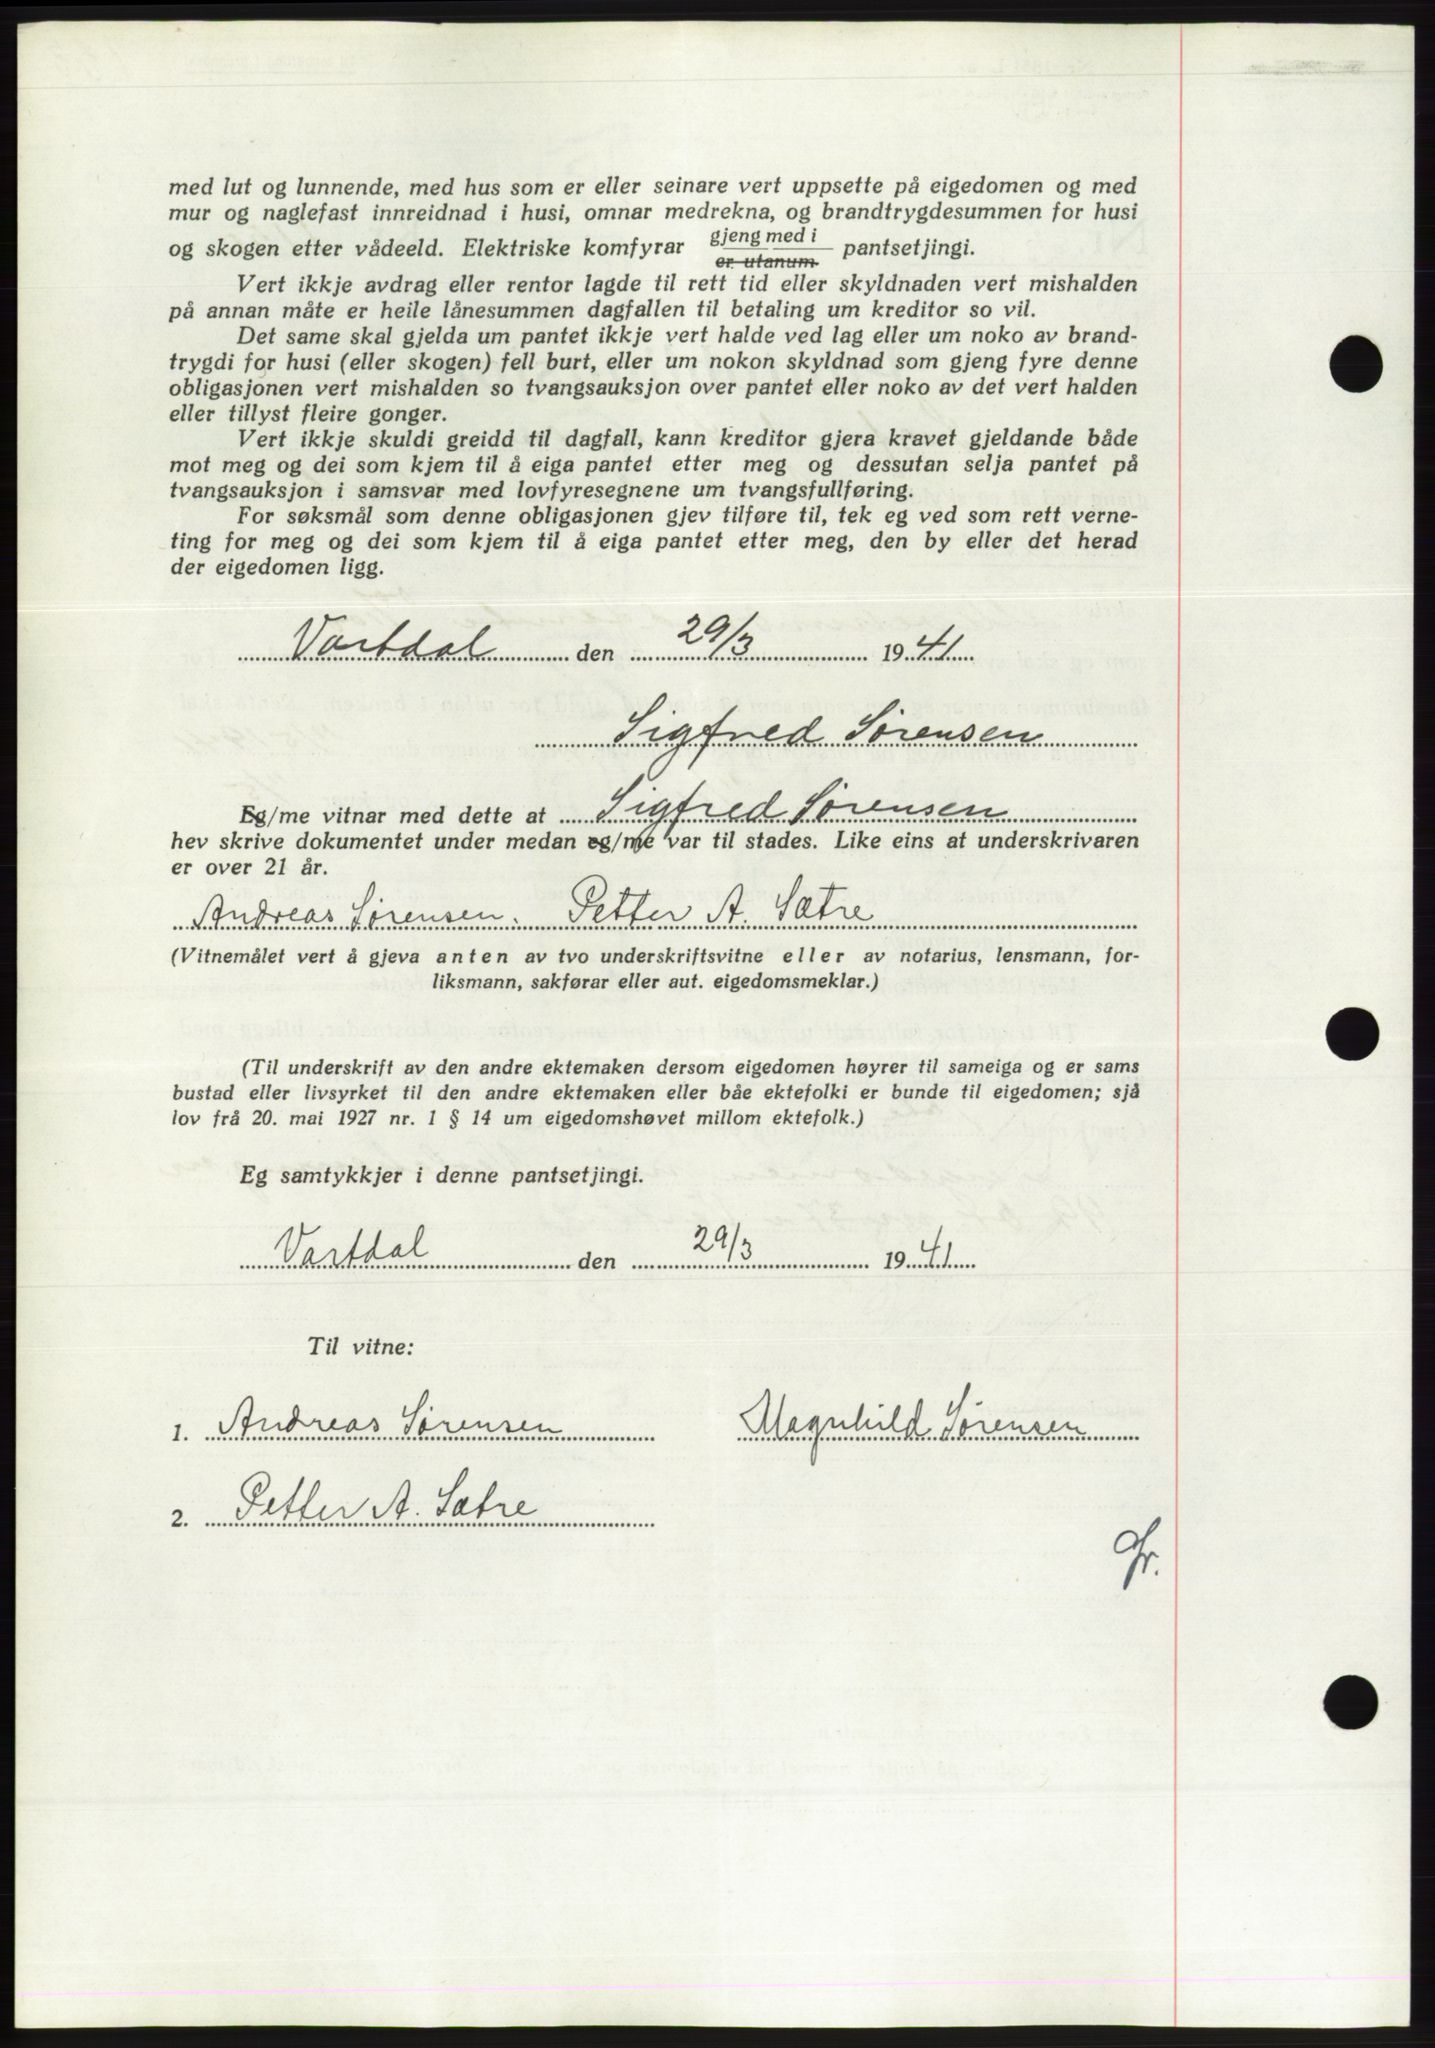 med lut og lunnende, med hus som er eller seinare vert uppsette på eigedomen og med
mur og naglefast innreidnad i husi, omnar medrekna, og brandtrygdesummen for husi
og skogen etter vådeeld. Elektriske komfyrar gjeng med i / er utanum pantsetjingi.
Vert ikkje avdrag eller rentor lagde til rett tid eller skyldnaden vert mishalden
på annan måte er heile lånesummen dagfallen til betaling um kreditor so vil.
Det same skal gjelda um pantet ikkje vert halde ved lag eller um noko av brand-
trygdi for husi (eller skogen) fell burt, eller um nokon skyldnad som gjeng fyre denne
obligasjonen vert mishalden so tvangsauksjon over pantet eller noko av det vert halden
eller tillyst fleire gonger.
Vert ikkje skuldi greidd til dagfall, kann kreditor gjera kravet gjeldande både
mot meg og dei som kjem til å eiga pantet etter meg og dessutan selja pantet på
tvangsauksjon i samsvar med lovfyresegnene um tvangsfullføring.
For søksmål som denne obligasjonen gjev tilføre til, tek eg ved som rett verne-
ting for meg og dei som kjem til å eiga pantet etter meg, den by eller det herad
der eigedomen ligg.
Vartdal den 29/3 1941
Sigfred Sørensen
Eg/me vitnar med dette at Sigfred Sørensen
hev skrive dokumentet under medan eg/me var til stades. Like eins at underskrivaren
er over 21 år.
Andreas Sørensen. Petter A. Sætre
(Vitnemålet vert å gjeva anten av tvo underskriftsvitne eller av notarius, lensmann, for-
liksmann, sakførar eller aut. eigedomsmeklar.)
(Til underskrift av den andre ektemaken dersom eigedomen høyrer til sameiga og er sams
bustad eller livsyrket til den andre ektemaken eller båe ektefolki er bunde til eigedomen; sjå
lov frå 20. mai 1927 nr. 1 § 14 um eigedomshøvet millom ektefolk.)
Eg samtykkjer i denne pantsetjingi.
Vartdal den 29/3 1941
Til vitne:
1. Andreas Sørensen Magnhild Sørensen
2. Petter A. Sætre